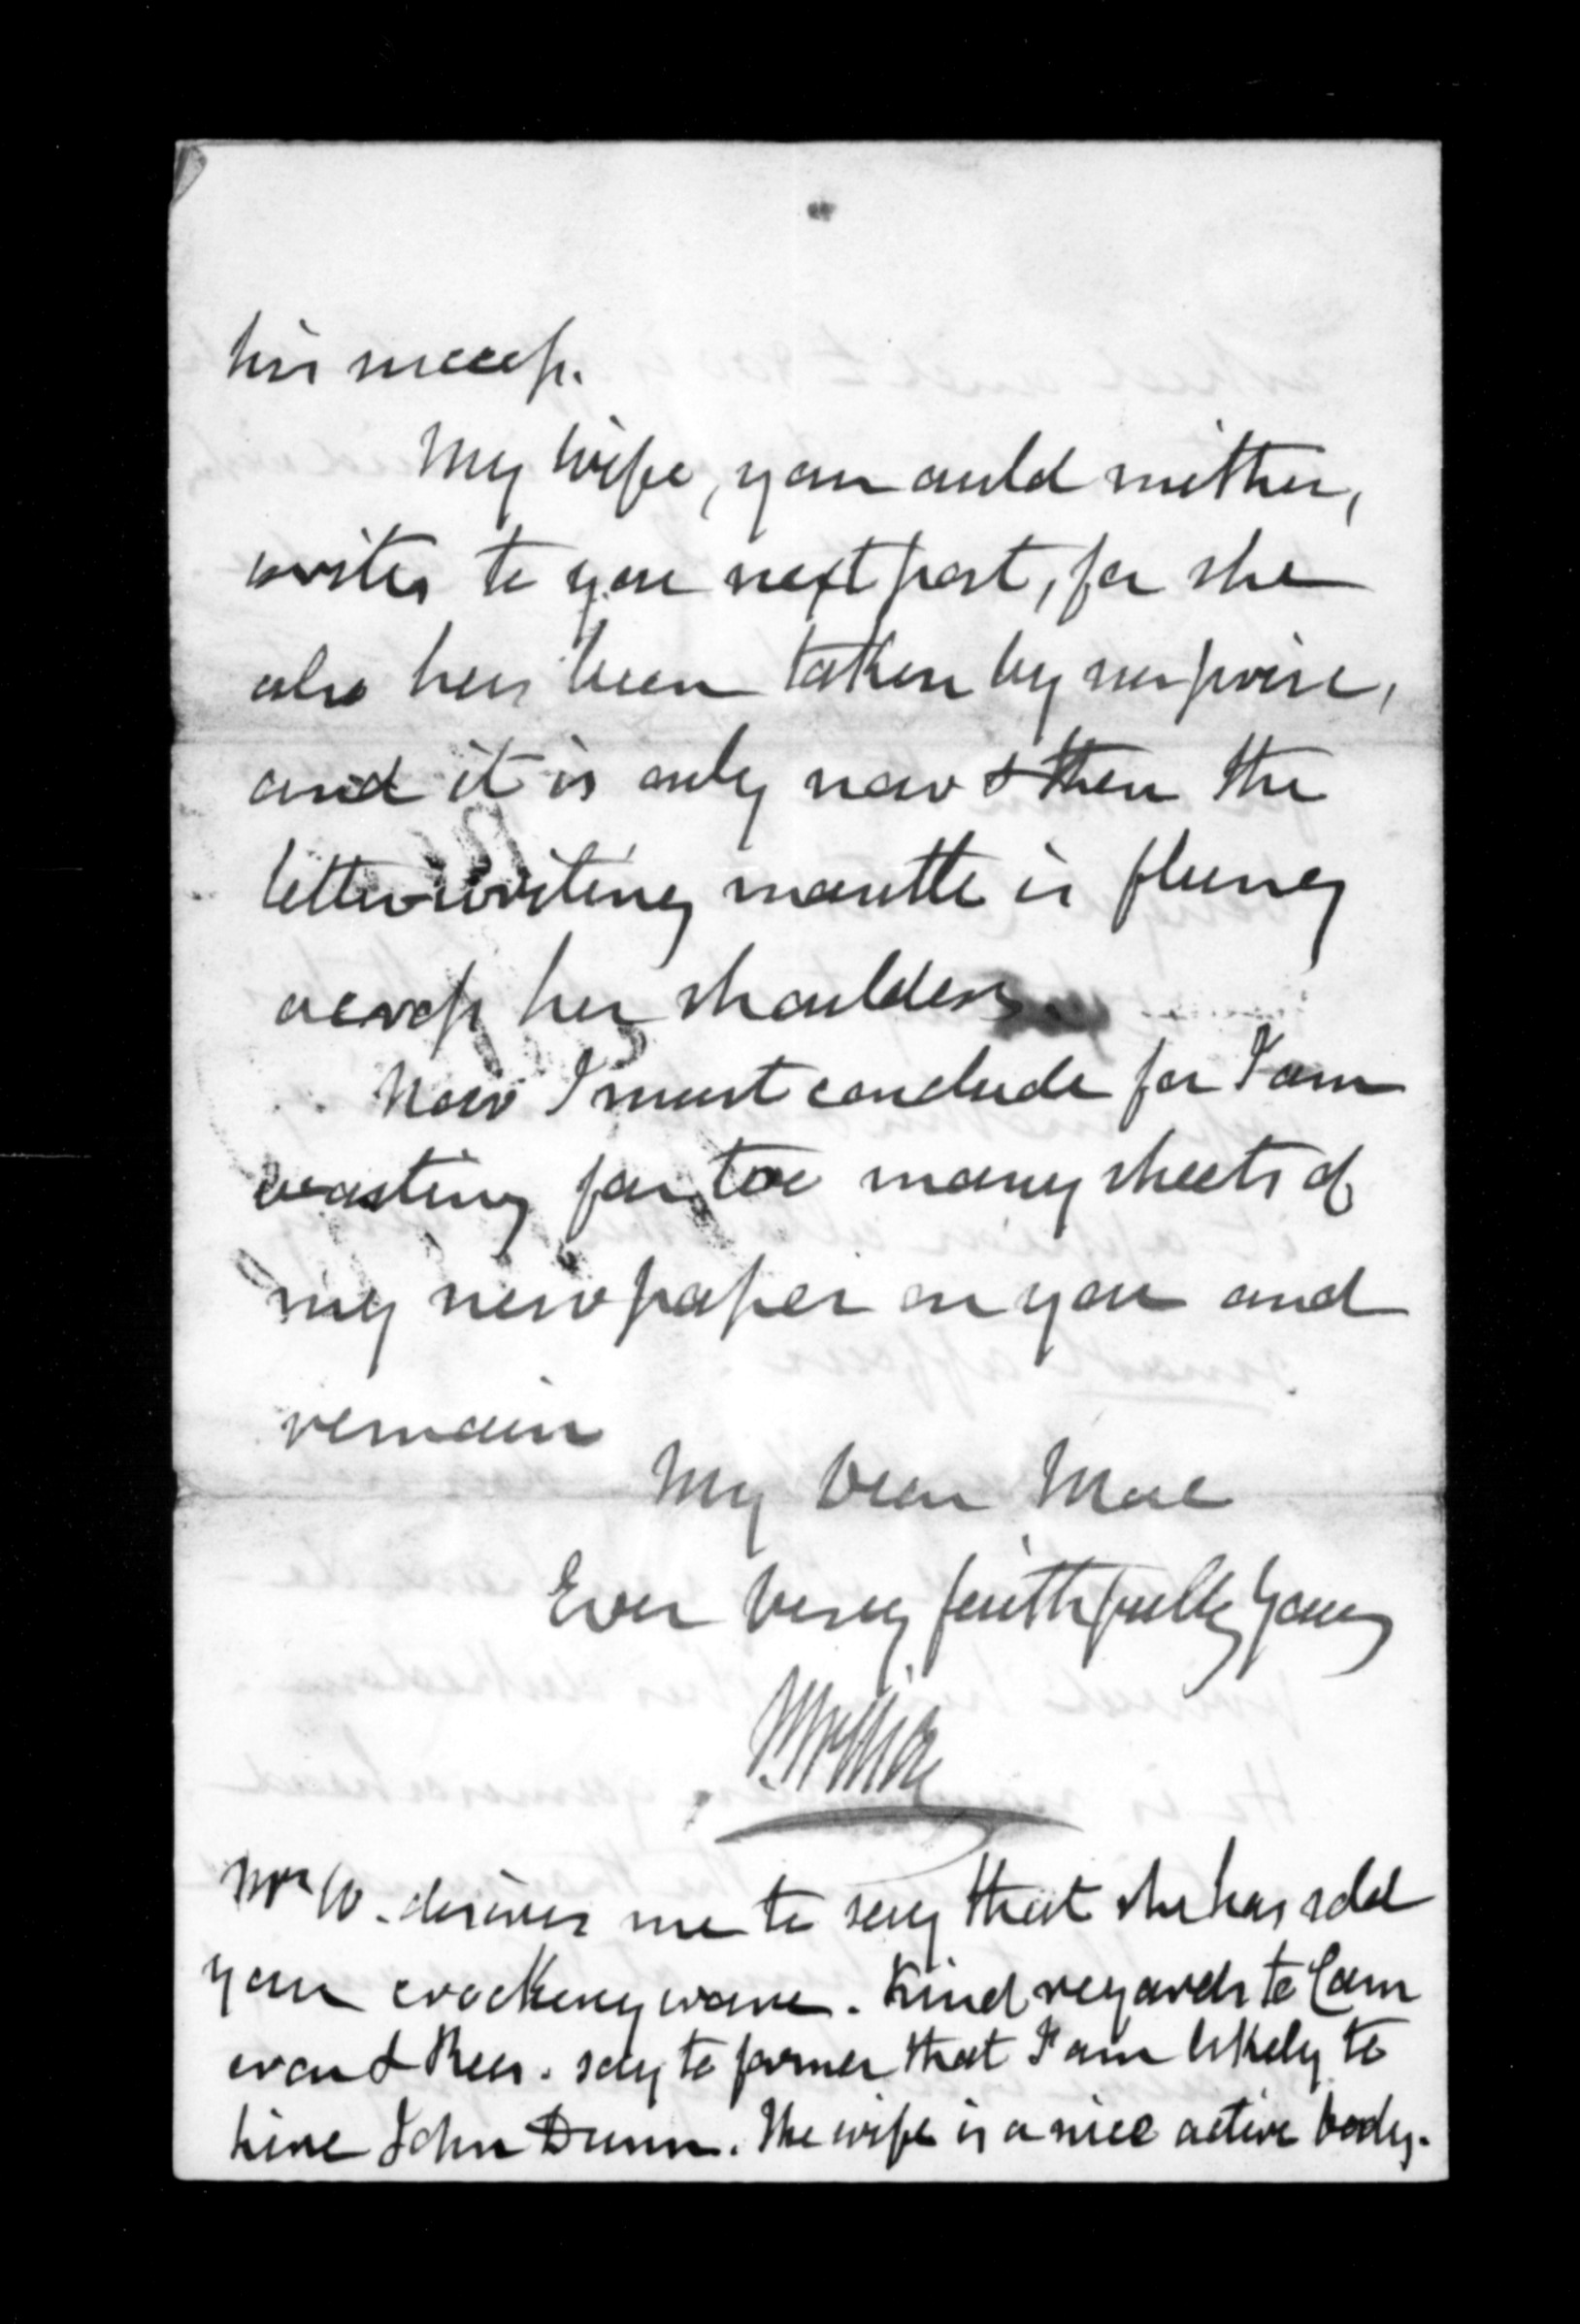 his success.
My wife, your auld mither,
writes to you next post, for she
also has been taken by surprise,
and it is only now & then the
letter-writing mantle is flung
across her shoulders.
Now I must conclude for I am
wasting far too many sheets of
my new paper on you and
remain
My dear Mac
Ever very faithfully yours
Mrs W. desires me to say that she has sold
your crockeryware. Kind regards to Cam
eron & Rees. say to former that I am likely to
hire John Dunn. The wife is a nice active body.